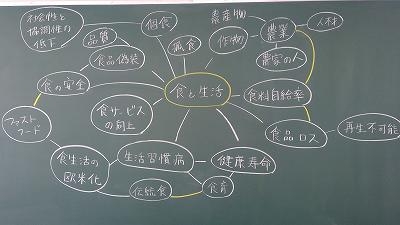 社会性と
協調性の
低下
個食
孤食
畜産物
作物
農業
人材
農家の人
品質
食品偽装
食の安全
食と生活
食料自給率
食サービス
の向上
ファスト
フード
食品ロス
再生不可能
食生活の
欧米化
生活習慣病
健康寿命
伝統食
食育